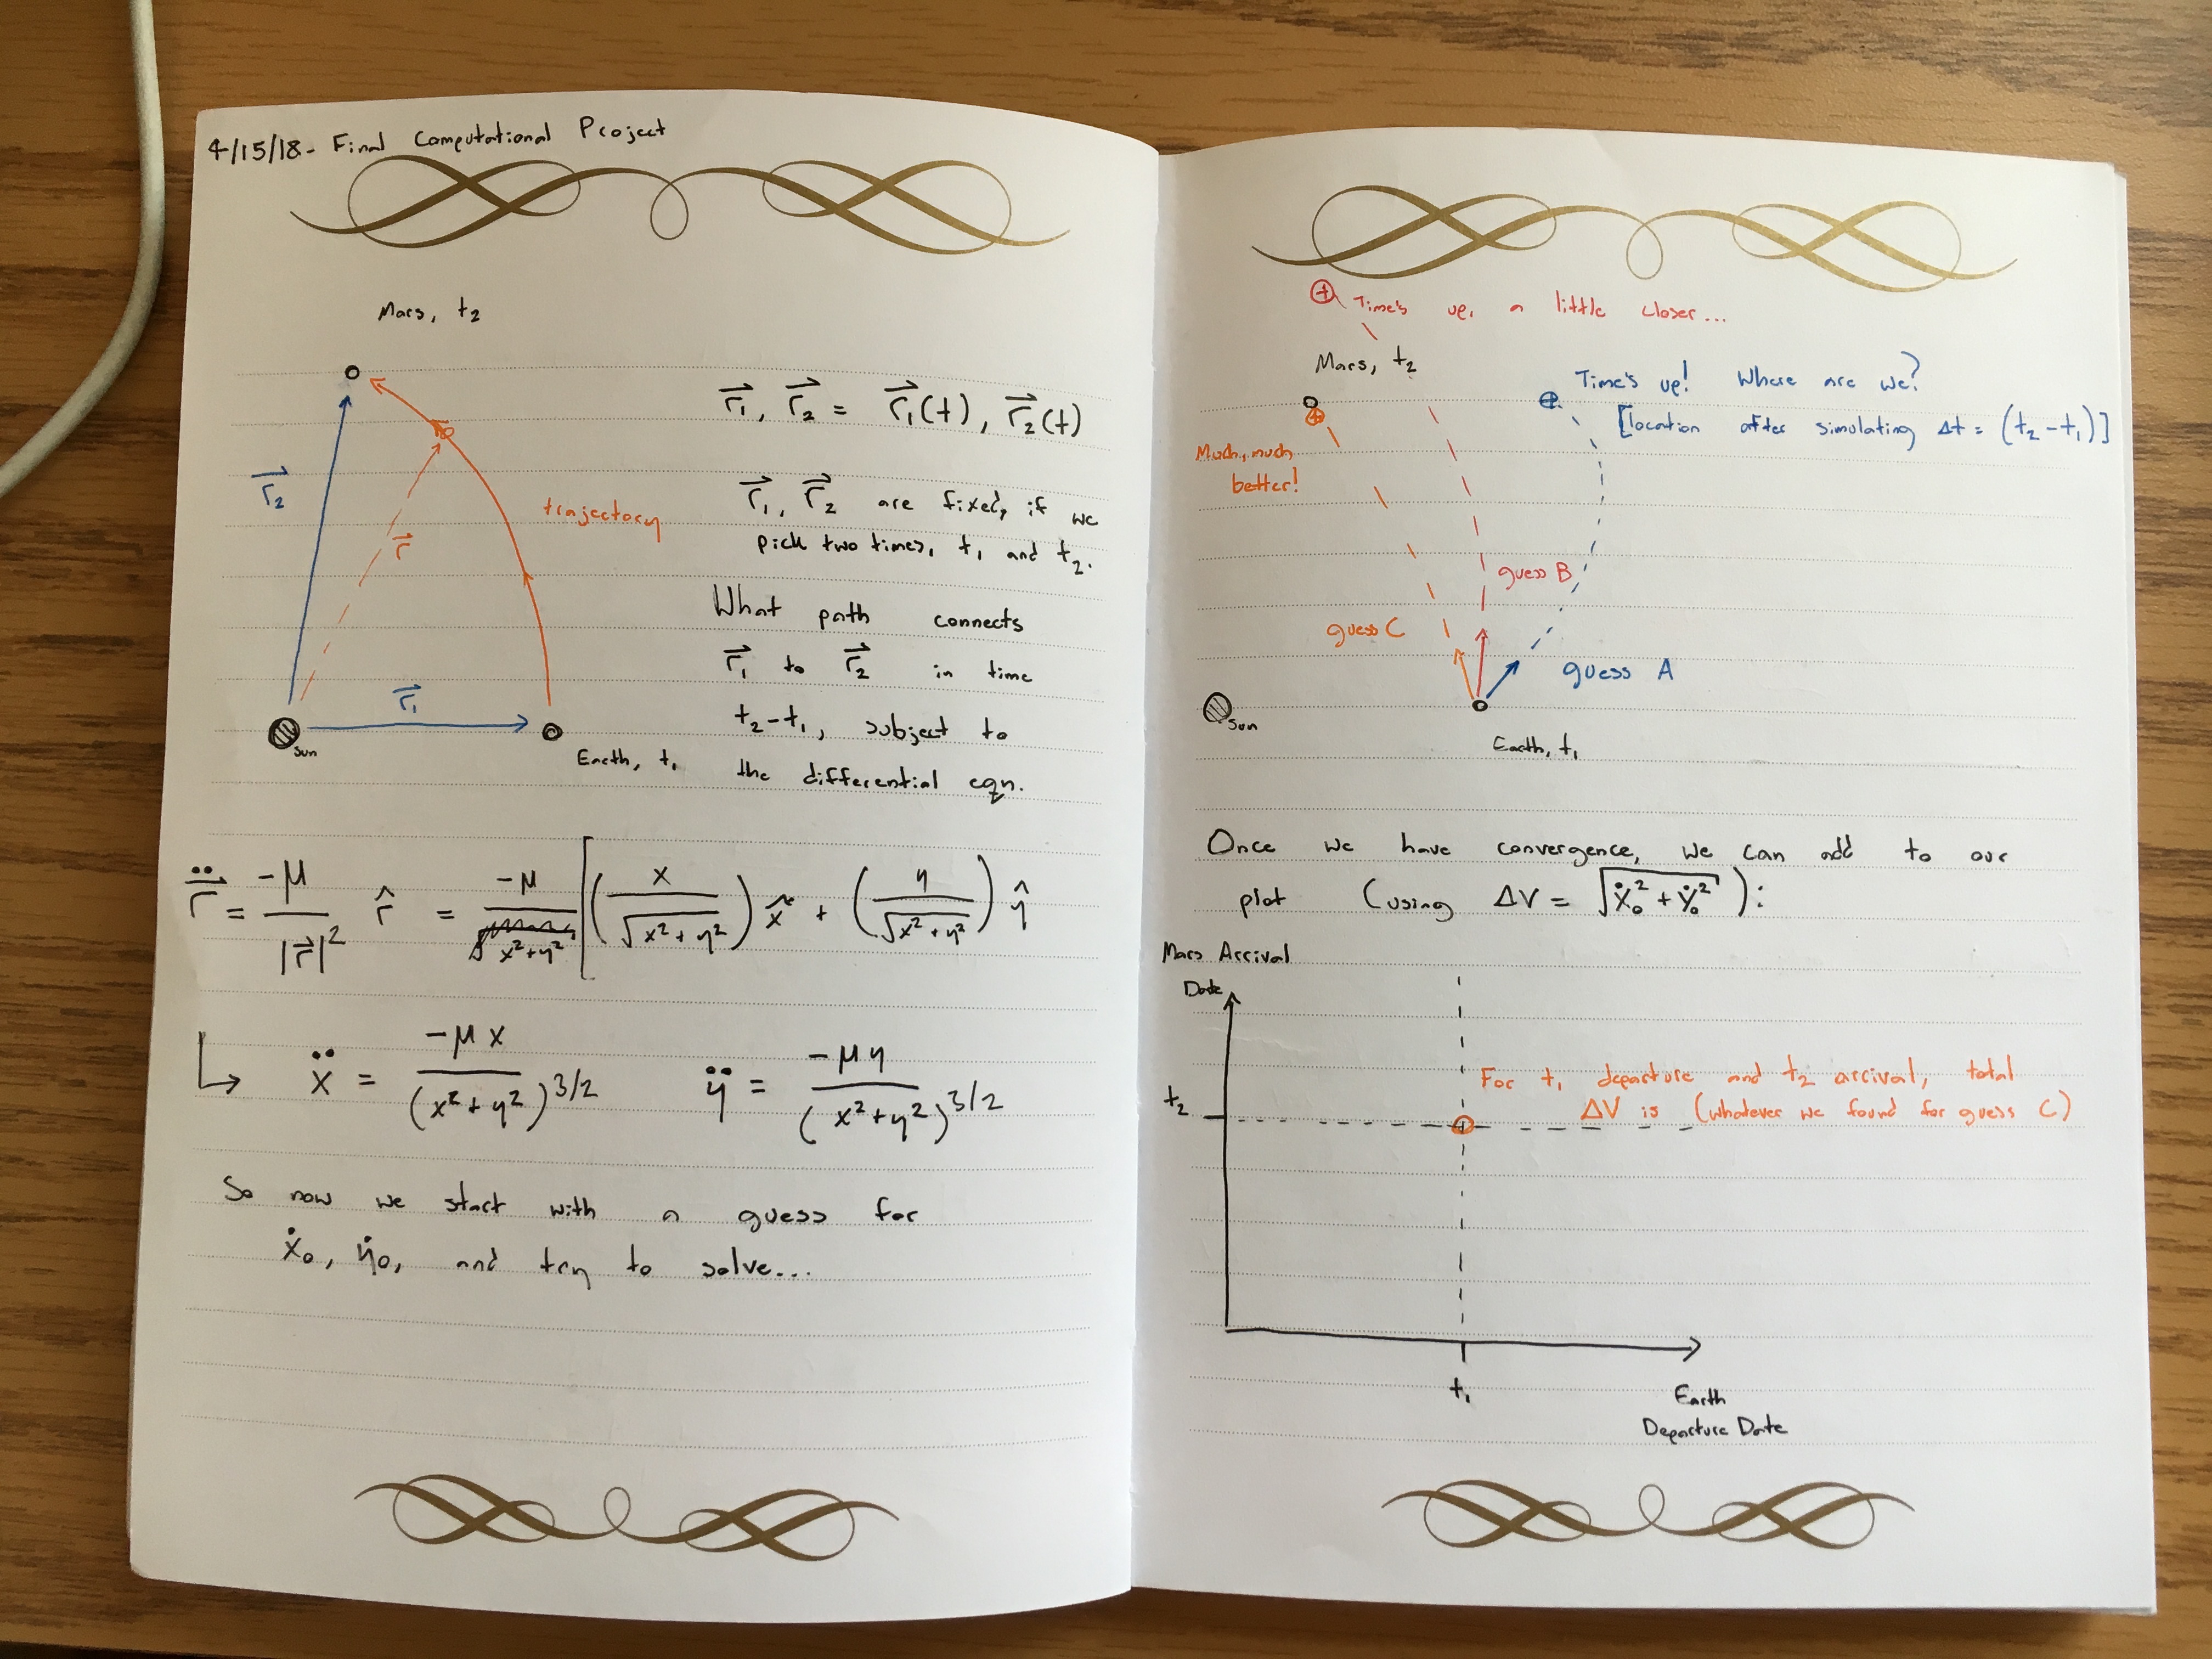 4/15/18- Final Computational Project
Mars, t₂
r⃗₂
r⃗
trajectory
r⃗₁
Sun
Earth, t₁
r⃗₁, r⃗₂ = r⃗₁(t), r⃗₂(t)
r⃗₁, r⃗₂ are fixed, if we
pick two times, t₁ and t₂.
What path connects
r⃗₁ to r⃗₂ in time
t₂-t₁, subject to
the differential eqn.
r⃗̈ = -μ/|r⃗|² r̂ = -μ/(x²+y²) [(x/√(x²+y²)) x̂ + (y/√(x²+y²)) ŷ
↳ ẍ = -μx/(x²+y²)^3/2 ÿ = -μy/(x²+y²)^3/2
So now we start with a guess for
ẋ₀, ẏ₀, and try to solve...
Time's up, a little closer...
Mars, t₂
Time's up! Where are we?
[location after simulating Δt = (t₂-t₁)]
Much, much
better!
guess B
guess C
guess A
Sun
Earth, t₁
Once we have convergence, we can add to our
plot (using ΔV = √(ẋ₀² + ẏ₀²)):
Mars Arrival
Date
For t₁ departure and t₂ arrival, total
ΔV is (whatever we found for guess C)
t₂
t₁
Earth
Departure Date